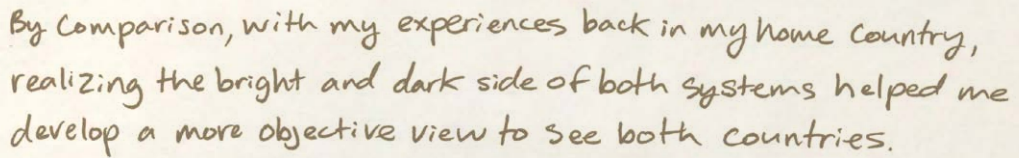 By Comparison, with my experiences back in my home country,
realizing the bright and dark side of both systems helped me
develop a more objective view to see both countries.